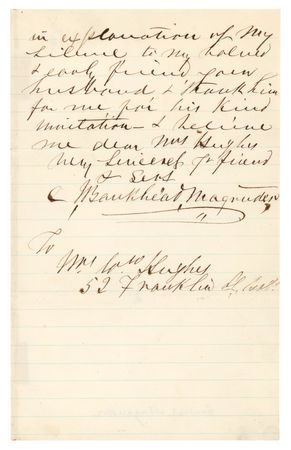 in explanation of my
silence to my valued
& early friend your
husband & thank him
for me for his kind
invitation - & believe
me dear Mrs Hughes
Very Sincerely yr friend
& Servt
J Bankhead Magruder
To
Mrs Wm Hughes
52 Franklin St